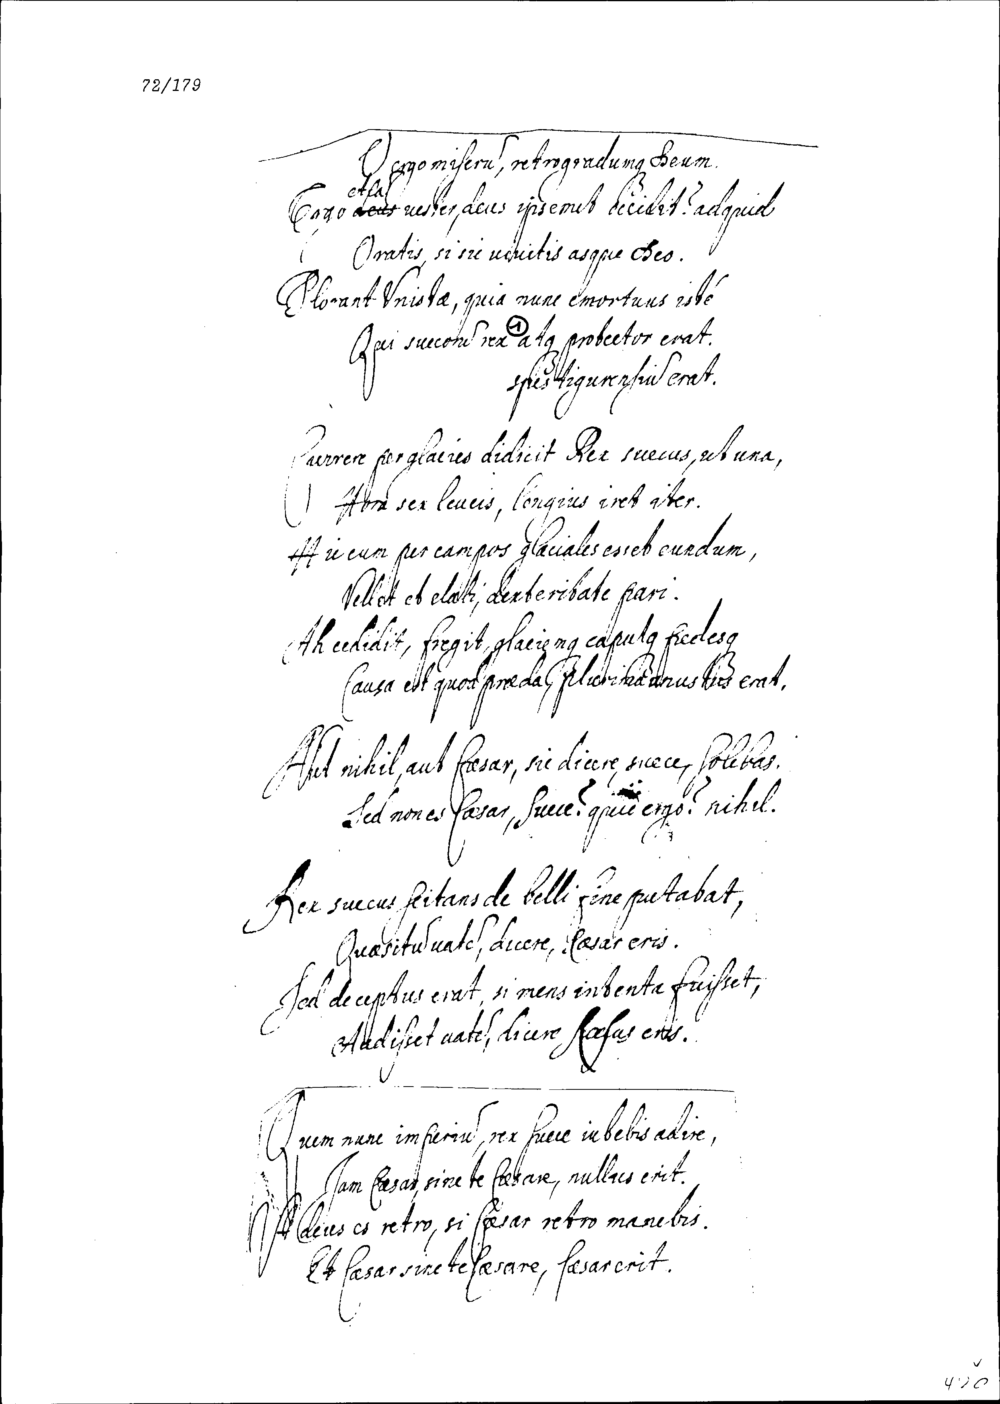 72/179
O ergo miserū, retrogradumq Deum.
et fal
Ergo deus vester, deus ipse mut decidit? ad quid
Oratis, si sic vivitis absque Deo.
Plorant Unistæ, quia nunc emortuus istē
Qui suecorū rex 1 atq protector erat.
spes tigurensiū erat.
Currere per glacies didicit Rex suecus, ut una,
Hora sex leucis, longius iret iter.
Hic cum per campos glaciales esset eundum,
Vellet et elati, dexteritate pari.
Ah cedidit, fregit, glaciemq caputq pedesq
Causa est quod præda, plurima onustus erat.
Aut nihil, aut Cæsar, sic dicere, suece, solebas.
Sed non es Cæsar, suece? quid ergo? nihil.
Rex suecus scitans de belli fine putabat,
Quæsitū vatē, dicere, Cæsar eris.
Sed deceptus erat, si mens intenta fuisset,
Audisset vatē, dicere Cæsus eris.
Quem nunc imperiū, rex suece iubebis adire,
Jam Cæsar, sine te Cæsare, nullus erit.
Ut deus es retro, si Cæsar retro manebis.
Et Cæsar sine te Cæsare, Cæsar erit.